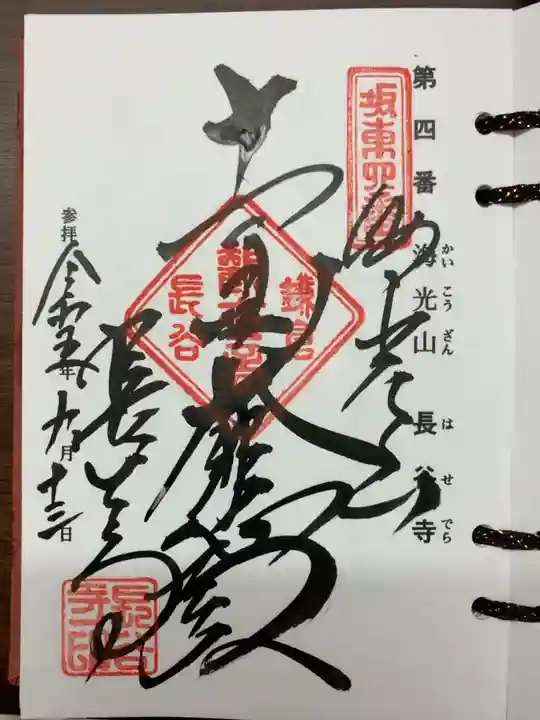 第四番 海光山 長谷寺
かいこうざん はせでら
坂東四番
海光山
鎌倉
長谷
長谷寺
参拝 令和五年九月十三日
長谷寺印